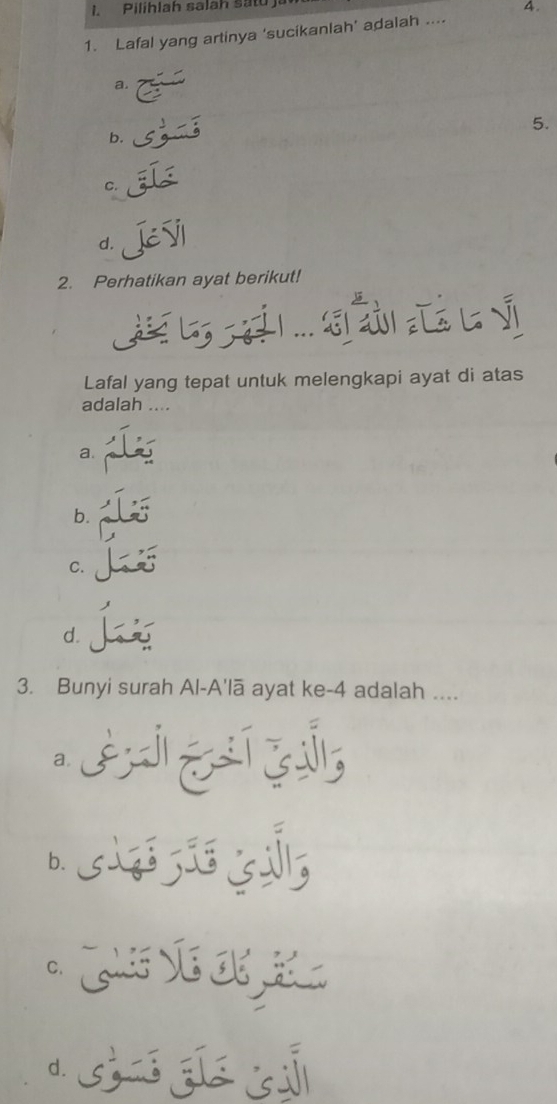 I. Pilihlah salah satu
4.
1. Lafal yang artinya 'sucikanlah' adalah ....
a. سَبِّحِ
b. فَسَوّٰى
5.
c. خَلَقَ
d. الْاَعْلَى
2. Perhatikan ayat berikut!
اِلَّا مَا شَاۤءَ اللّٰهُ ۗاِنَّهٗ ... الْجَهْرَ وَمَا يَخْفٰى
Lafal yang tepat untuk melengkapi ayat di atas
adalah ....
a. يَعْلَمُ
b. تَعْلَمُ
c. تَعْمَلُ
d. يَعْمَلُ
3. Bunyi surah Al-A'lā ayat ke-4 adalah ....
a. وَالَّذِيْٓ اَخْرَجَ الْمَرْعٰى
b. وَالَّذِيْ قَدَّرَ فَهَدٰى
c. سَنُقْرِئُكَ فَلَا تَنْسٰىٓ
d. الَّذِيْ خَلَقَ فَسَوّٰى